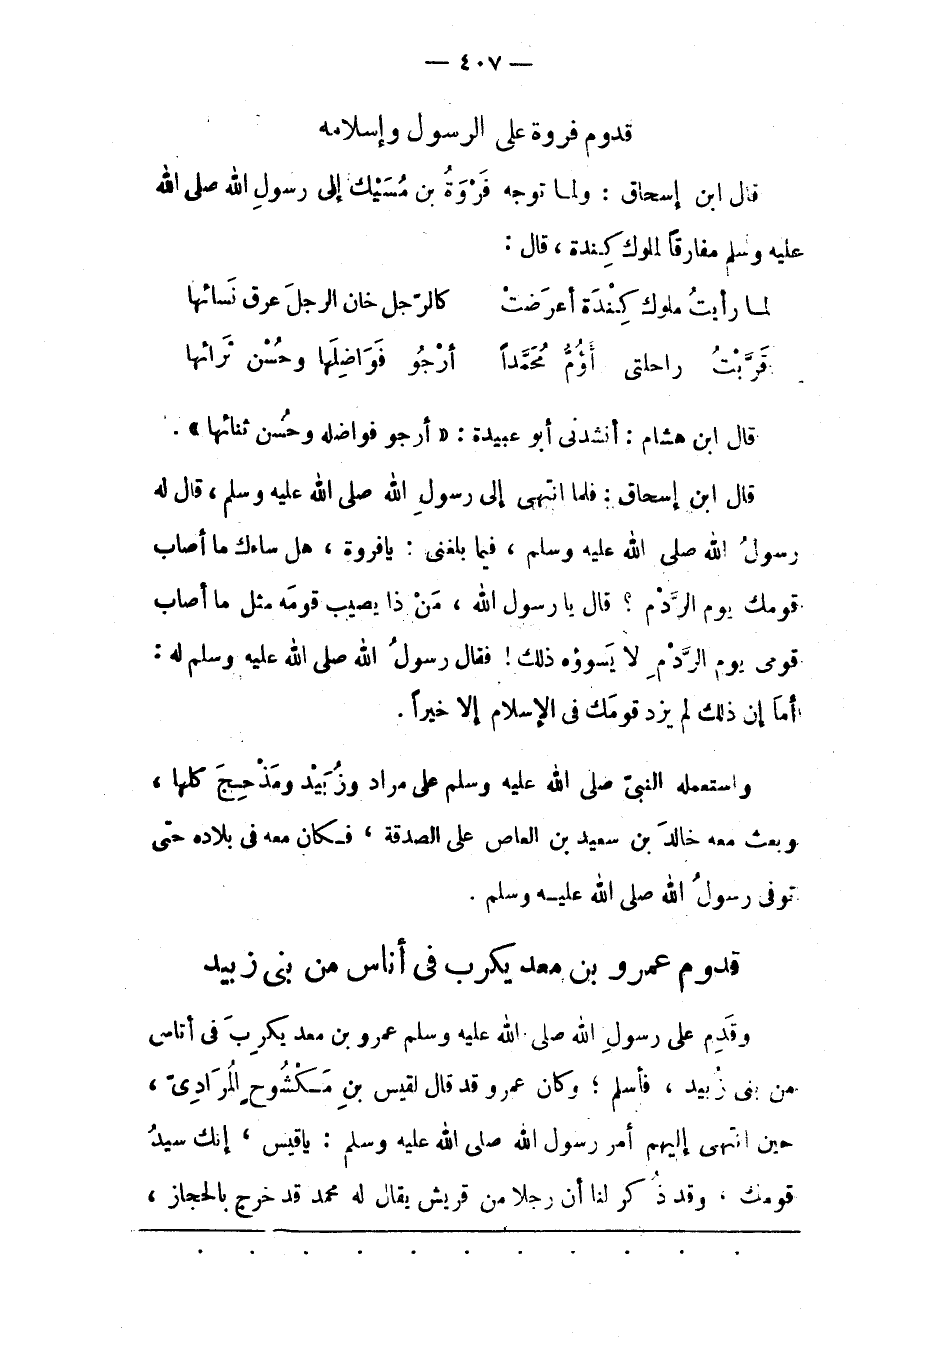 — ٤٠٧ —
قدوم فروة على الرسول وإسلامه
قال ابن إسحاق : ولمـا توجه فَرْوَةُ بن مُسَيْك إلى رسولِ الله صلى الله
عليه وسلم مفارقاً لملوك كِندة ، قال :
لمـا رأيتُ ملوك كِنْدَة أعرَضتْ كالرّجل خان الرجلَ عرق نَسائها
قَرَّبْتُ راحلتى أَؤُمُّ مُحَمَّداً أرْجُو فَوَاضِلَها وحُسْن ثَرائها
قال ابن هشام : أنشدنى أبو عبيدة : « أرجو فواضله وحُسن ثنائها » .
قال ابن إسحاق : فلما انتهى إلى رسولِ الله صلى الله عليه وسلم ، قال له
رسولُ الله صلى الله عليه وسلم ، فيما بلغنى : يافروة ، هل ساءك ما أصاب
قومك يوم الرَّدْم ؟ قال يا رسول الله ، مَنْ ذا يصيب قومَه مثل ما أصاب
قومى يوم الرَّدْمِ لا يَسوؤه ذلك ! فقال رسولُ الله صلى الله عليه وسلم له :
أمَا إن ذلك لم يزد قومَك فى الإسلام إلا خيراً .
واستعمله النبىّ صلى الله عليه وسلم على مراد وزُبَيْد ومَذْحِجَ كلها ،
وبعث معه خالدَ بن سعيد بن العاص على الصدقة ، فـكان معه فى بلاده حتّى
توفى رسولُ الله صلى الله عليـه وسلم .
قدوم عمرو بن معد يكرب فى أناس من بنى زبيد
وقَدِم على رسولِ الله صلى الله عليه وسلم عمرو بن معد يكربَ فى أناس
من بنى زُبيد ، فأسلم ؛ وكان عمرو قد قال لقيس بنِ مَـكْشُوحٍ المُرَادِىّ ،
حين انتهى إليهم أمر رسول الله صلى الله عليه وسلم : ياقيس ، إنك سيدُ
قومك ، وقد ذُكر لنا أن رجلا من قريش يقال له محمد قد خرج بالحجاز ،